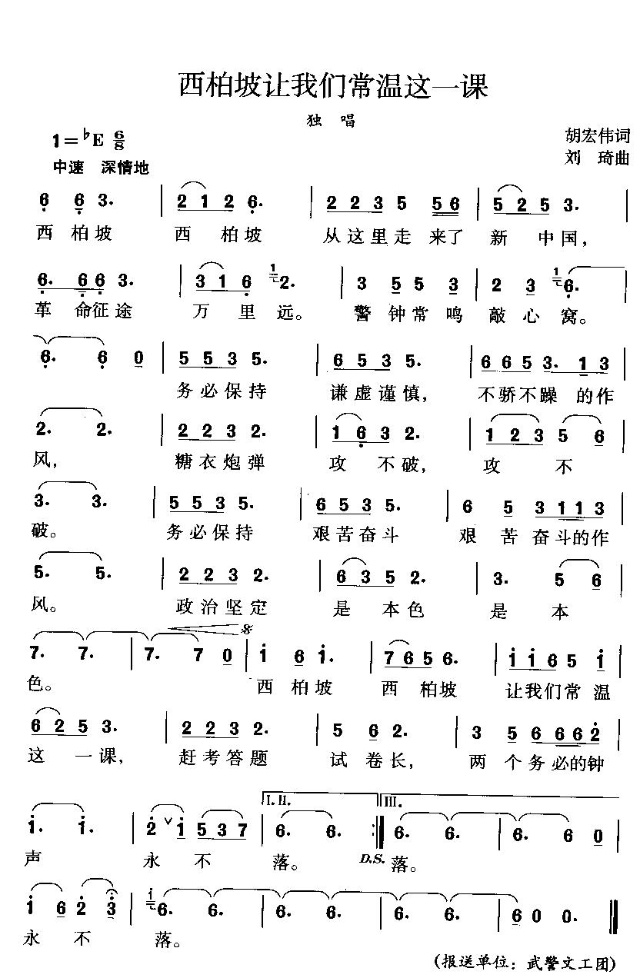 西柏坡让我们常温这一课
独 唱
1=♭E 6/8
胡宏伟词
中速 深情地
刘 琦曲
6 6 3. | 2 1 2 6. | 2 2 3 5 5 6 | 5 2 5 3. |
西 柏坡 西 柏坡 从这里走 来了 新 中国，
6. 6 6 3. | 3 1 6 2. | 3 5 5 5 | 2 3 6. |
革 命征途 万 里 远。 警 钟 常 鸣 敲 心 窝。
6. 6 0 | 5 5 3 5. | 6 5 3 5. | 6 6 5 3. 1 3 |
务 必 保 持 谦 虚 谨 慎， 不骄不躁 的作
2. 2. | 2 2 3 2. | 1 6 3 2. | 1 2 3 5 6 |
风， 糖 衣 炮 弹 攻 不 破， 攻 不
3. 3. | 5 5 3 5. | 6 5 3 5. | 6 5 3 1 1 3 |
破。 务必保持 艰苦奋斗 艰 苦 奋斗的作
5. 5. | 2 2 3 2. | 6 3 5 2. | 3. 5 6 |
风。 政治坚定 是 本色 是 本
7. 7. | 7. 7 0 | i 6 i. | 7 6 5 6. | i i 6 5 i |
色。 西 柏坡 西 柏坡 让我们常 温
6 2 5 3. | 2 2 3 2. | 5 6 6. | 3 5 6 6 6 2 |
这 一 课， 赶 考 答 题 试 卷 长， 两 个 务必的钟
I. II. III.
i. i. | 2 i 5 3 7 | 6. 6. :| 6. 6. | 6. 6 0
声 永 不 落。 D.S. 落。
i 6 2 3 | 6. 6. | 6. 6. | 6. 6 0
永 不 落。
(报送单位：武警文工团)